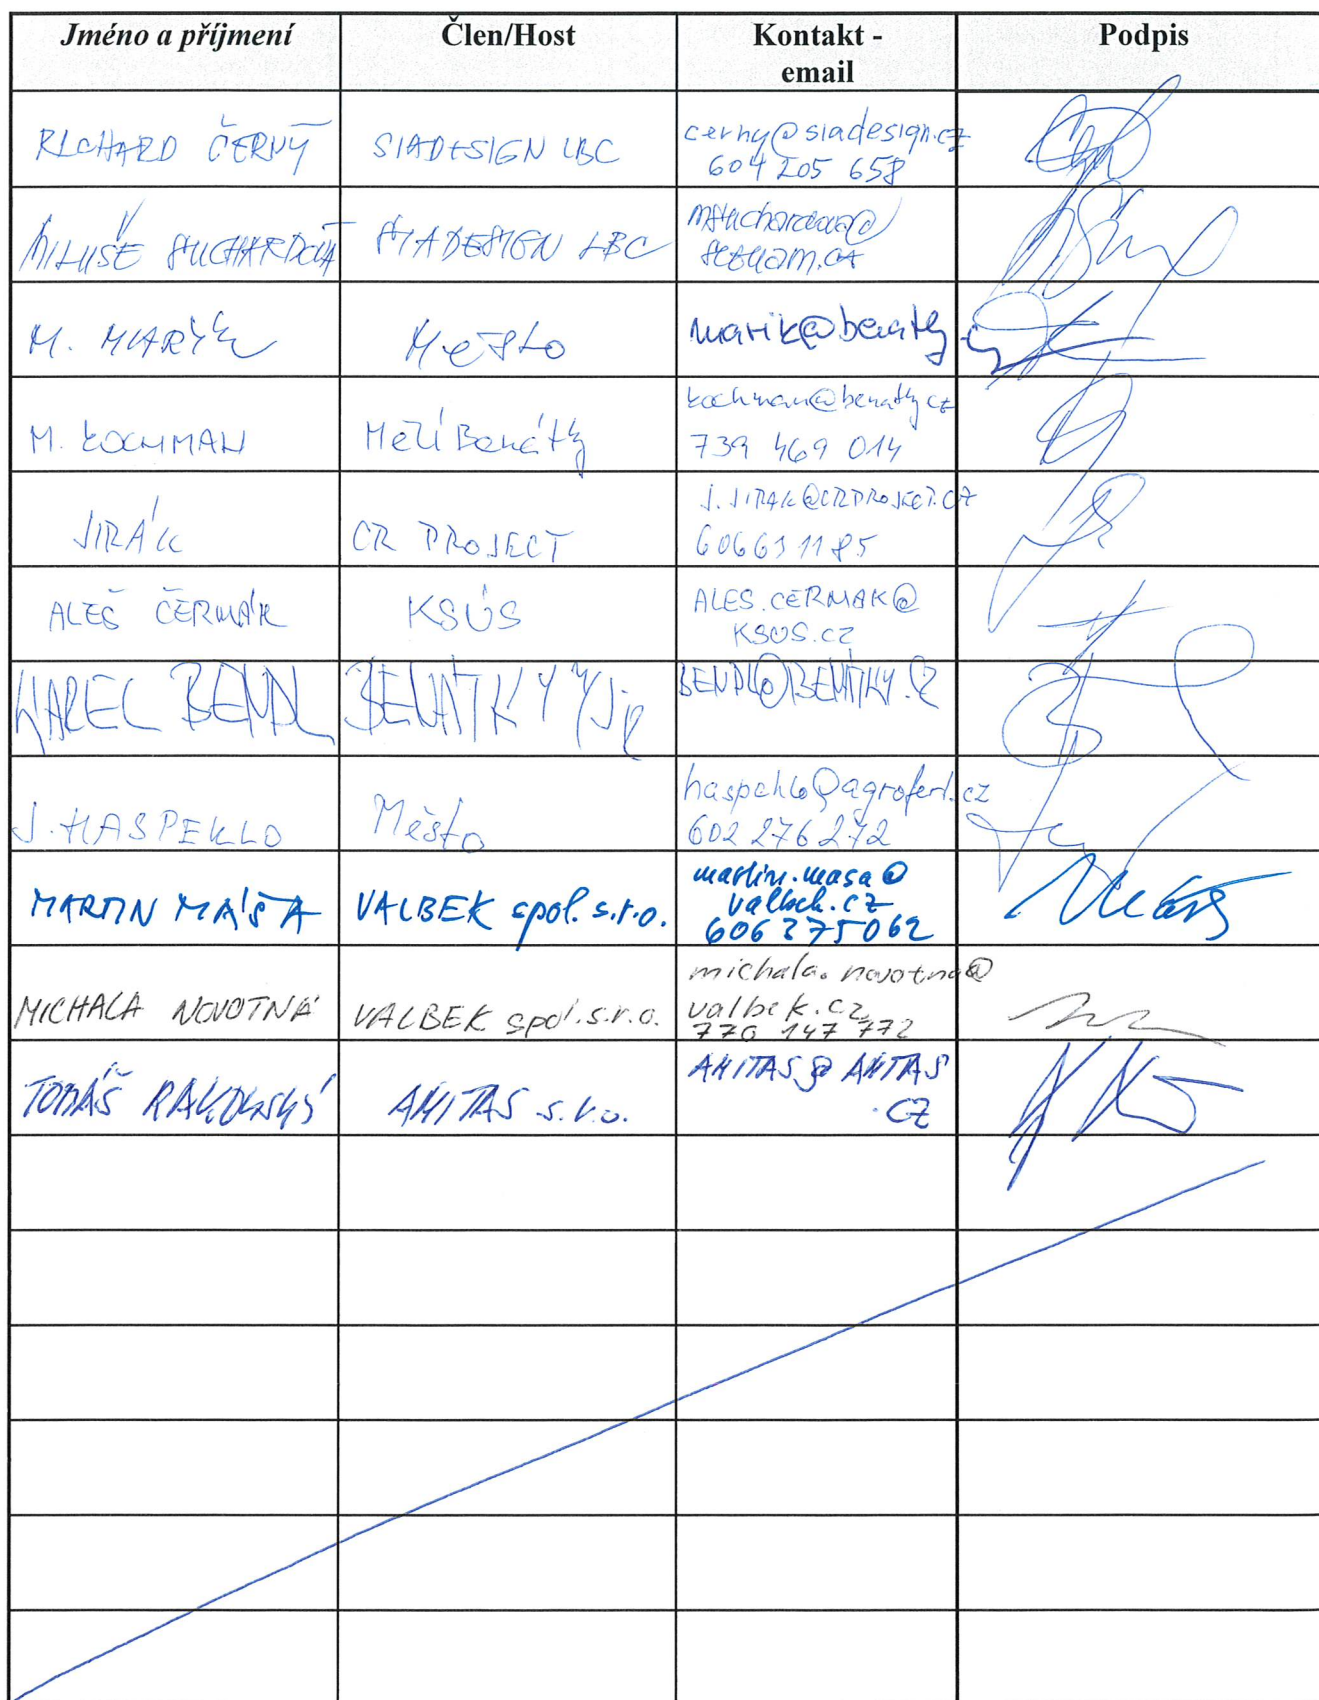 Jméno a příjmení Člen/Host Kontakt - Podpis
email
RICHARD ČERNÝ SIADESIGN LBC cerny@siadesign.cz
604 205 658
MILUŠE SUCHARDOVÁ SIADESIGN LBC msuchardova@
seznam.cz
M. MAŘÍK Město marik@benatky.cz
M. KOCHMAN Měú Benátky kochman@benatky.cz
739 469 014
JIRÁK CR PROJECT J.JIRAK@CRPROJECT.CZ
606631185
ALEŠ ČERMÁK KSÚS ALES.CERMAK@
KSUS.CZ
KAREL BENDL BENÁTKY n/Jiz BENDL@BENATKY.CZ
J. HASPEKLO Město haspeklo@agrofert.cz
602 276 272
MARTIN MÁŠA VALBEK spol. s.r.o. martin.masa@
valbek.cz
606 375 062
MICHALA NOVOTNÁ VALBEK spol.s.r.o. michala.novotna@
valbek.cz
770 147 772
TOMÁŠ RAKOVSKÝ AMITAS s.r.o. AMITAS@AMITAS
.CZ